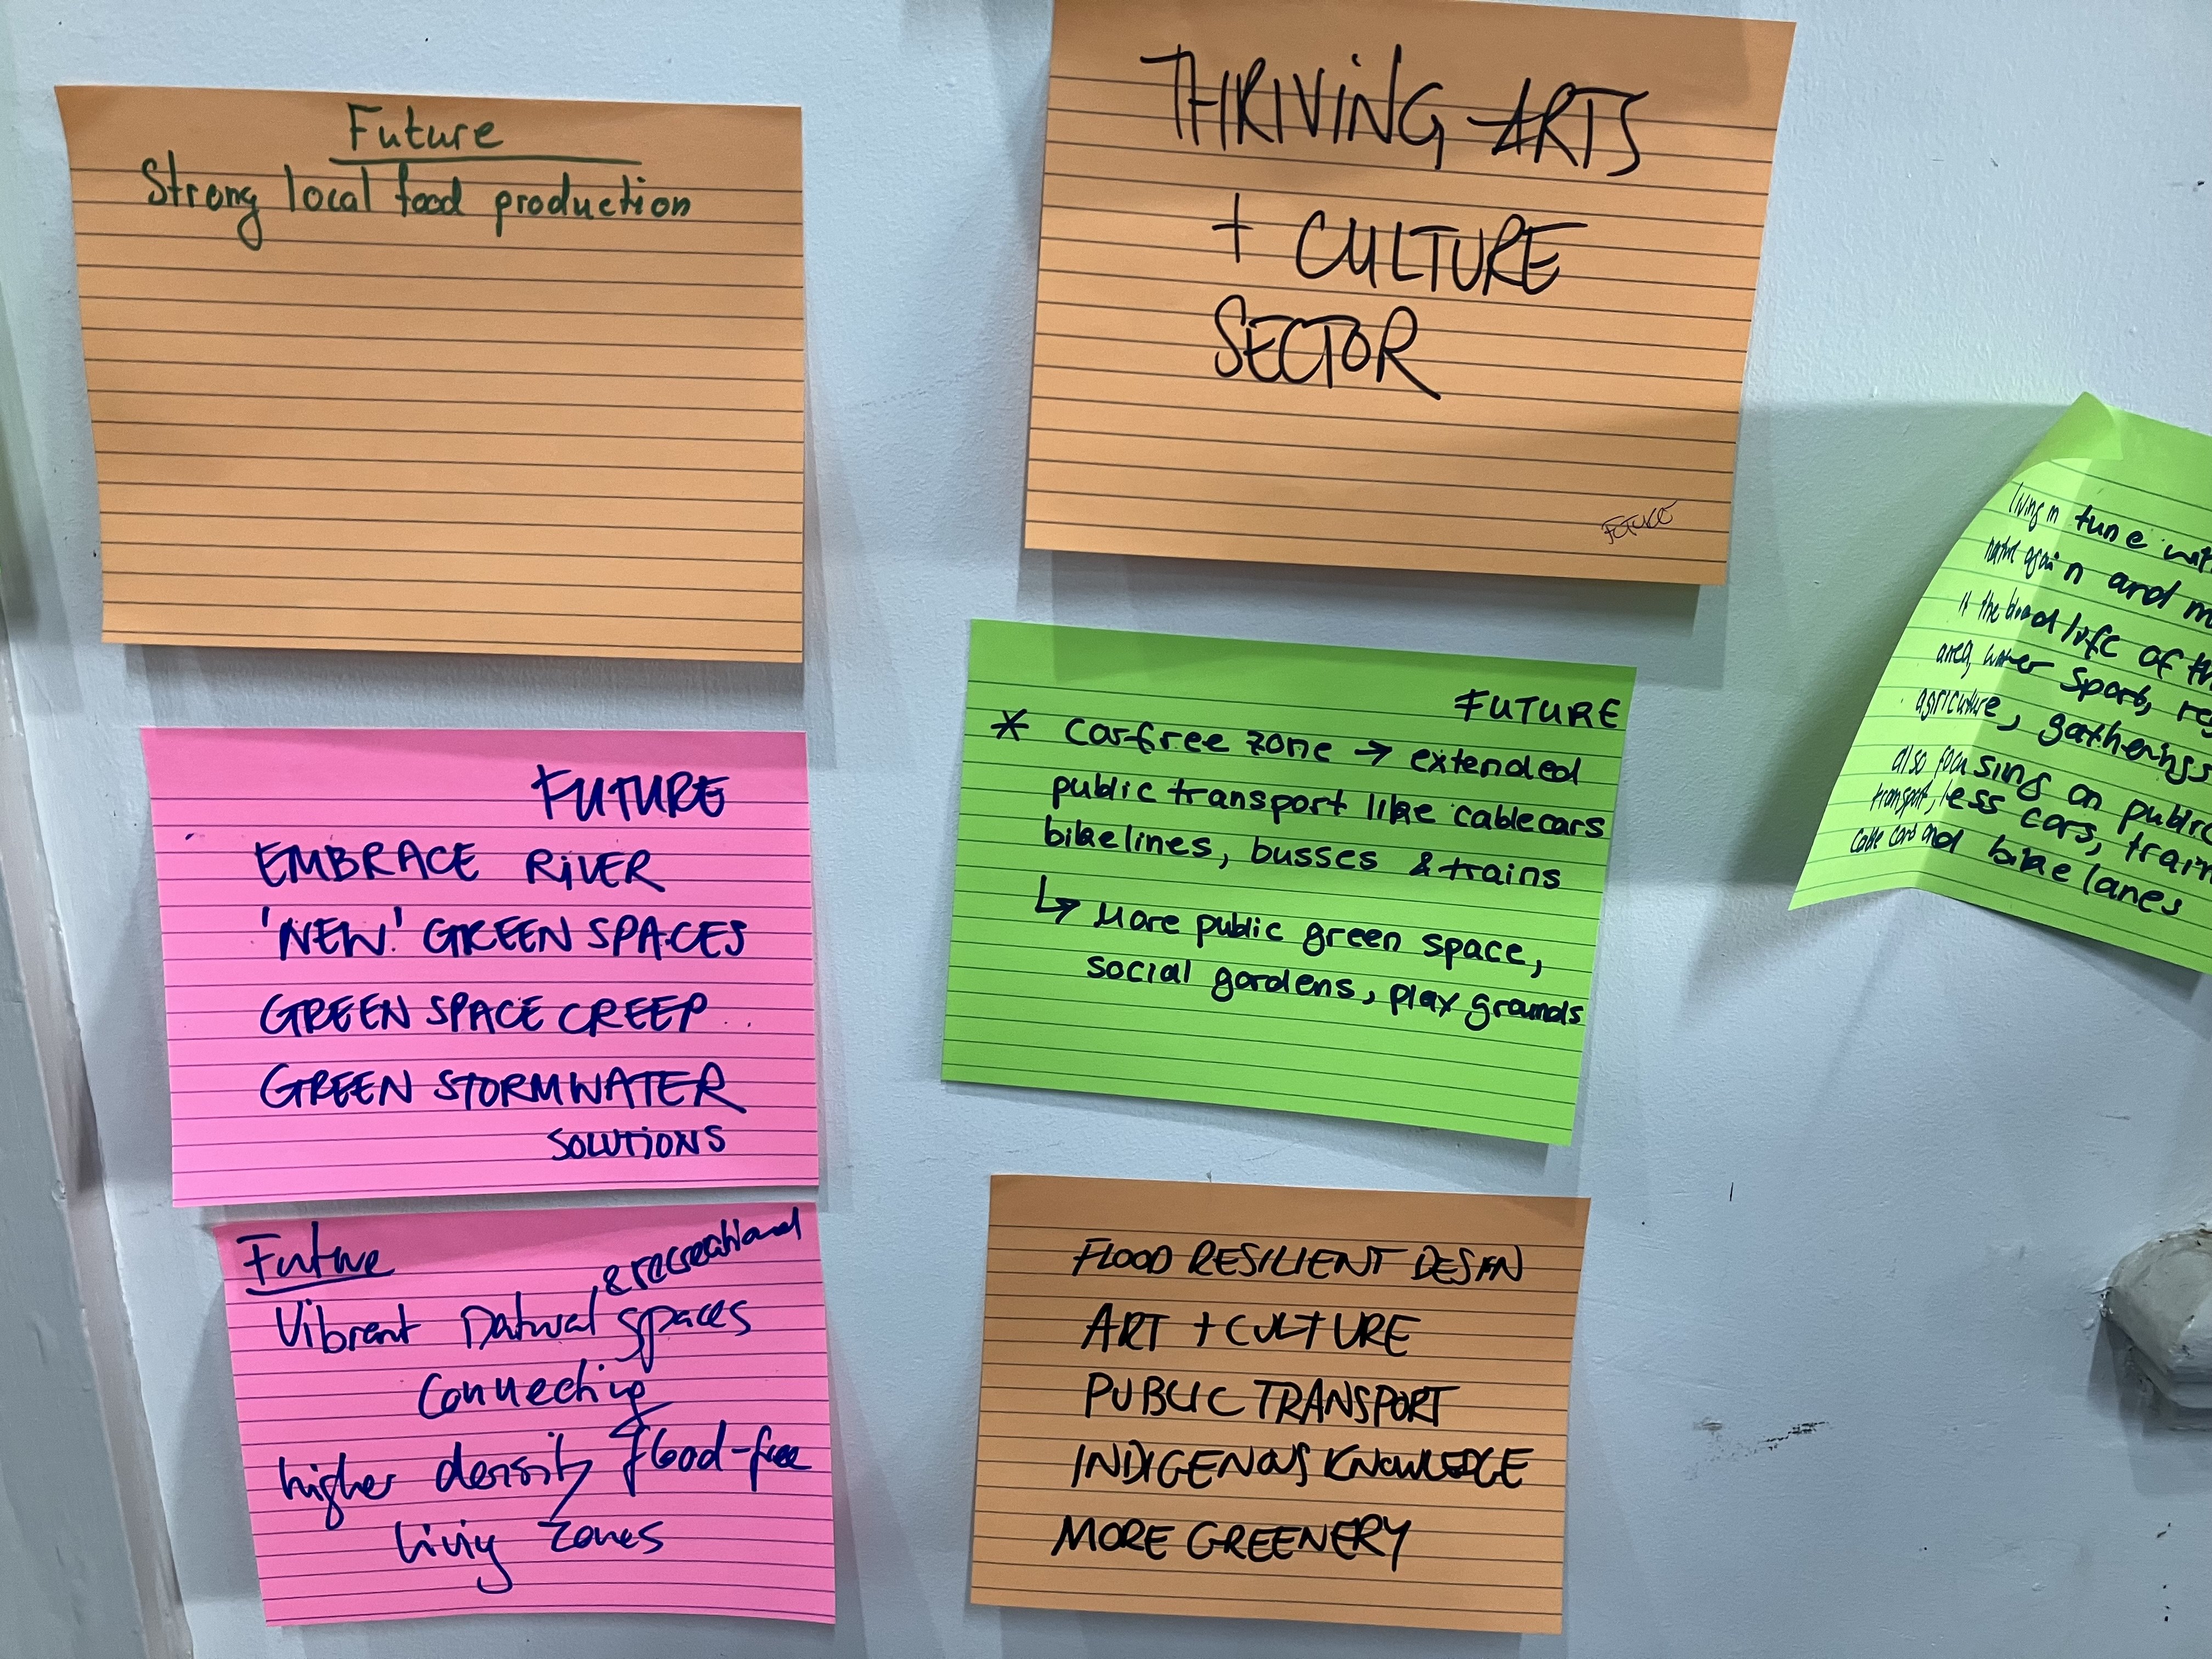 Future
Strong local food production
THRIVING ARTS
+ CULTURE
SECTOR
FUTURE
FUTURE
EMBRACE RIVER
'NEW' GREEN SPACES
GREEN SPACE CREEP
GREEN STORMWATER
SOLUTIONS
FUTURE
* Carfree zone → extended
public transport like cablecars
bikelines, busses & trains
↳ More public green space,
social gardens, play grounds
Future
& recreational
Vibrant natural spaces
Connecting
higher density flood-free
living zones
FLOOD RESILIENT DESIN
ART + CULTURE
PUBLIC TRANSPORT
INDIGENOUS KNOWLEDGE
MORE GREENERY
living in tune
again and
is the blood life of
area, water Sports,
agriculture, gatherings
also focusing on
transport, less cars,
cable cars and bike lanes